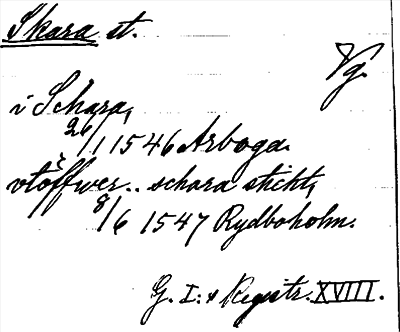 Skara st.
Vg.
i Schara,
26/1 1546 Arboga.
vtöffwer.. schara sticht,
8/6 1547 Rydboholm.
G. I:s Registr. XVIII.